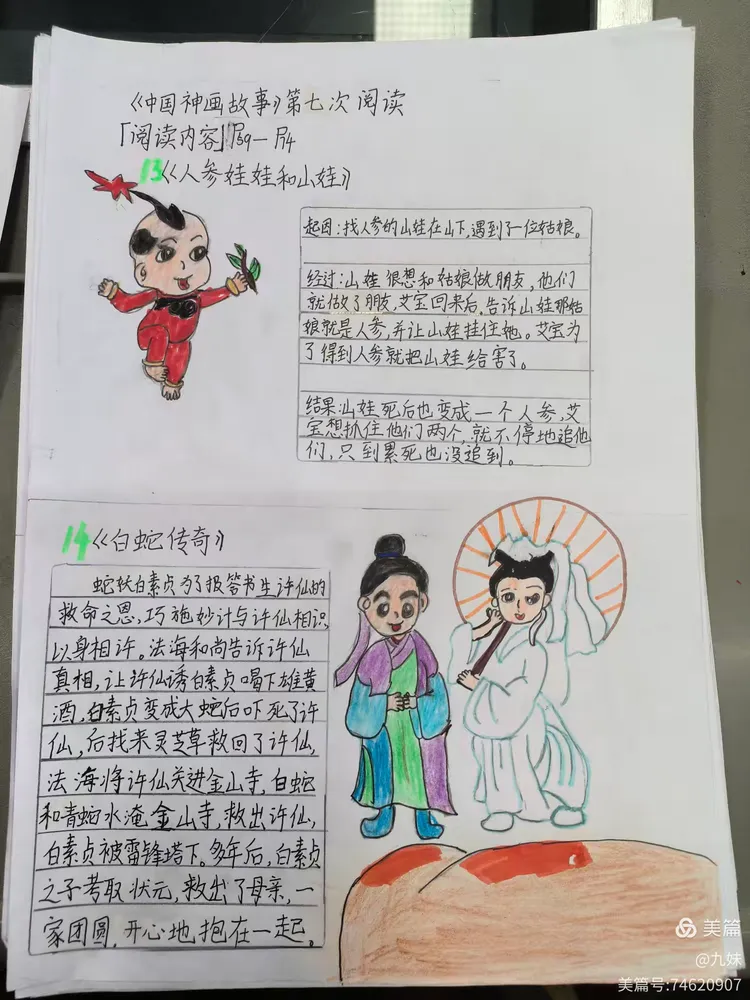 《中国神画故事》第七次阅读
「阅读内容」P59—P74
13《人参娃娃和山娃》
起因:找人参的山娃在山下,遇到了一位姑娘。
经过:山娃很想和姑娘做朋友,他们
就做了朋友,艾宝回来后,告诉山娃那姑
娘就是人参,并让山娃拄住她。艾宝为
了得到人参就把山娃给害了。
结果:山娃死后也变成一个人参,艾
宝想抓住他们两个,就不停地追他
们,只到累死也没追到。
14《白蛇传奇》
蛇妖白素贞为了报答书生许仙的
救命之恩,巧施妙计与许仙相识,
以身相许。法海和尚告诉许仙
真相,让许仙诱白素贞喝下雄黄
酒,白素贞变成大蛇后吓死了许
仙,后找来灵芝草救回了许仙,
法海将许仙关进金山寺,白蛇
和青蛇水淹金山寺,救出许仙,
白素贞被雷锋塔下。多年后,白素贞
之子考取状元,救出了母亲,一
家团圆,开心地抱在一起。
美篇
@九妹
美篇号:74620907